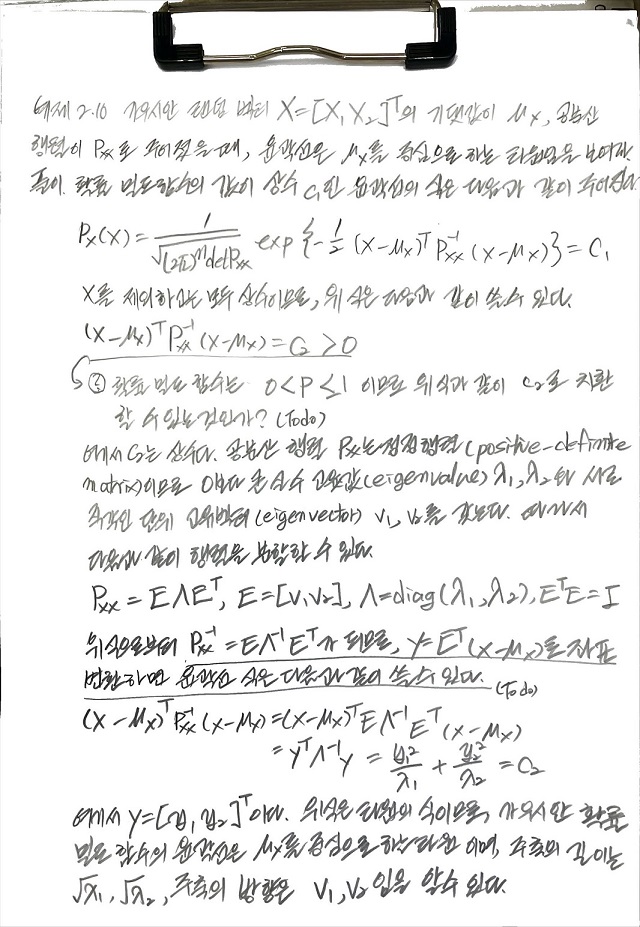 예제 2.10 가우시안 랜덤 벡터 X=[X₁ X₂]ᵀ의 기댓값이 μₓ, 공분산
행렬이 Pₓₓ로 주어졌을 때, 윤곽선은 μₓ를 중심으로 하는 타원임을 보여라.
풀이. 확률 밀도함수의 값이 상수 C₁인 윤곽선의 식은 다음과 같이 주어진다.
Pₓ(X) = 1/√((2π)ⁿdetPₓₓ) exp{-1/2 (X-μₓ)ᵀ Pₓₓ⁻¹ (X-μₓ)} = C₁
X를 제외하고는 모두 상수이므로, 위 식은 다음과 같이 쓸 수 있다.
(X-μₓ)ᵀ Pₓₓ⁻¹ (X-μₓ) = C₂ > 0
? 확률 밀도 함수는 0<P≤1 이므로 위 식과 같이 C₂로 치환
할 수 있는 것인가? (Todo)
여기서 C₂는 상수다. 공분산 행렬 Pₓₓ는 정정행렬 (positive-definite
matrix)이므로 0보다 큰 실수 고윳값(eigenvalue) λ₁, λ₂와 서로
직각인 단위 고유벡터 (eigenvector) v₁, v₂를 갖는다. 따라서
다음과 같이 행렬을 분할할 수 있다.
Pₓₓ = EΛEᵀ, E=[v₁ v₂], Λ=diag(λ₁, λ₂), EᵀE=I
위 식으로부터 Pₓₓ⁻¹ = EΛ⁻¹Eᵀ가 되므로, y=Eᵀ(X-μₓ)로 좌표
변환하면 윤곽선 식은 다음과 같이 쓸 수 있다. (Todo)
(X-μₓ)ᵀPₓₓ⁻¹(X-μₓ) = (X-μₓ)ᵀEΛ⁻¹Eᵀ(X-μₓ)
= yᵀΛ⁻¹y = y₁²/λ₁ + y₂²/λ₂ = C₂
여기서 y=[y₁ y₂]ᵀ이다. 위 식은 타원의 식이므로, 가우시안 확률
밀도 함수의 윤곽선은 μₓ를 중심으로 하는 타원 이며, 주축의 길이는
√λ₁, √λ₂, 주축의 방향은 v₁, v₂ 임을 알 수 있다.